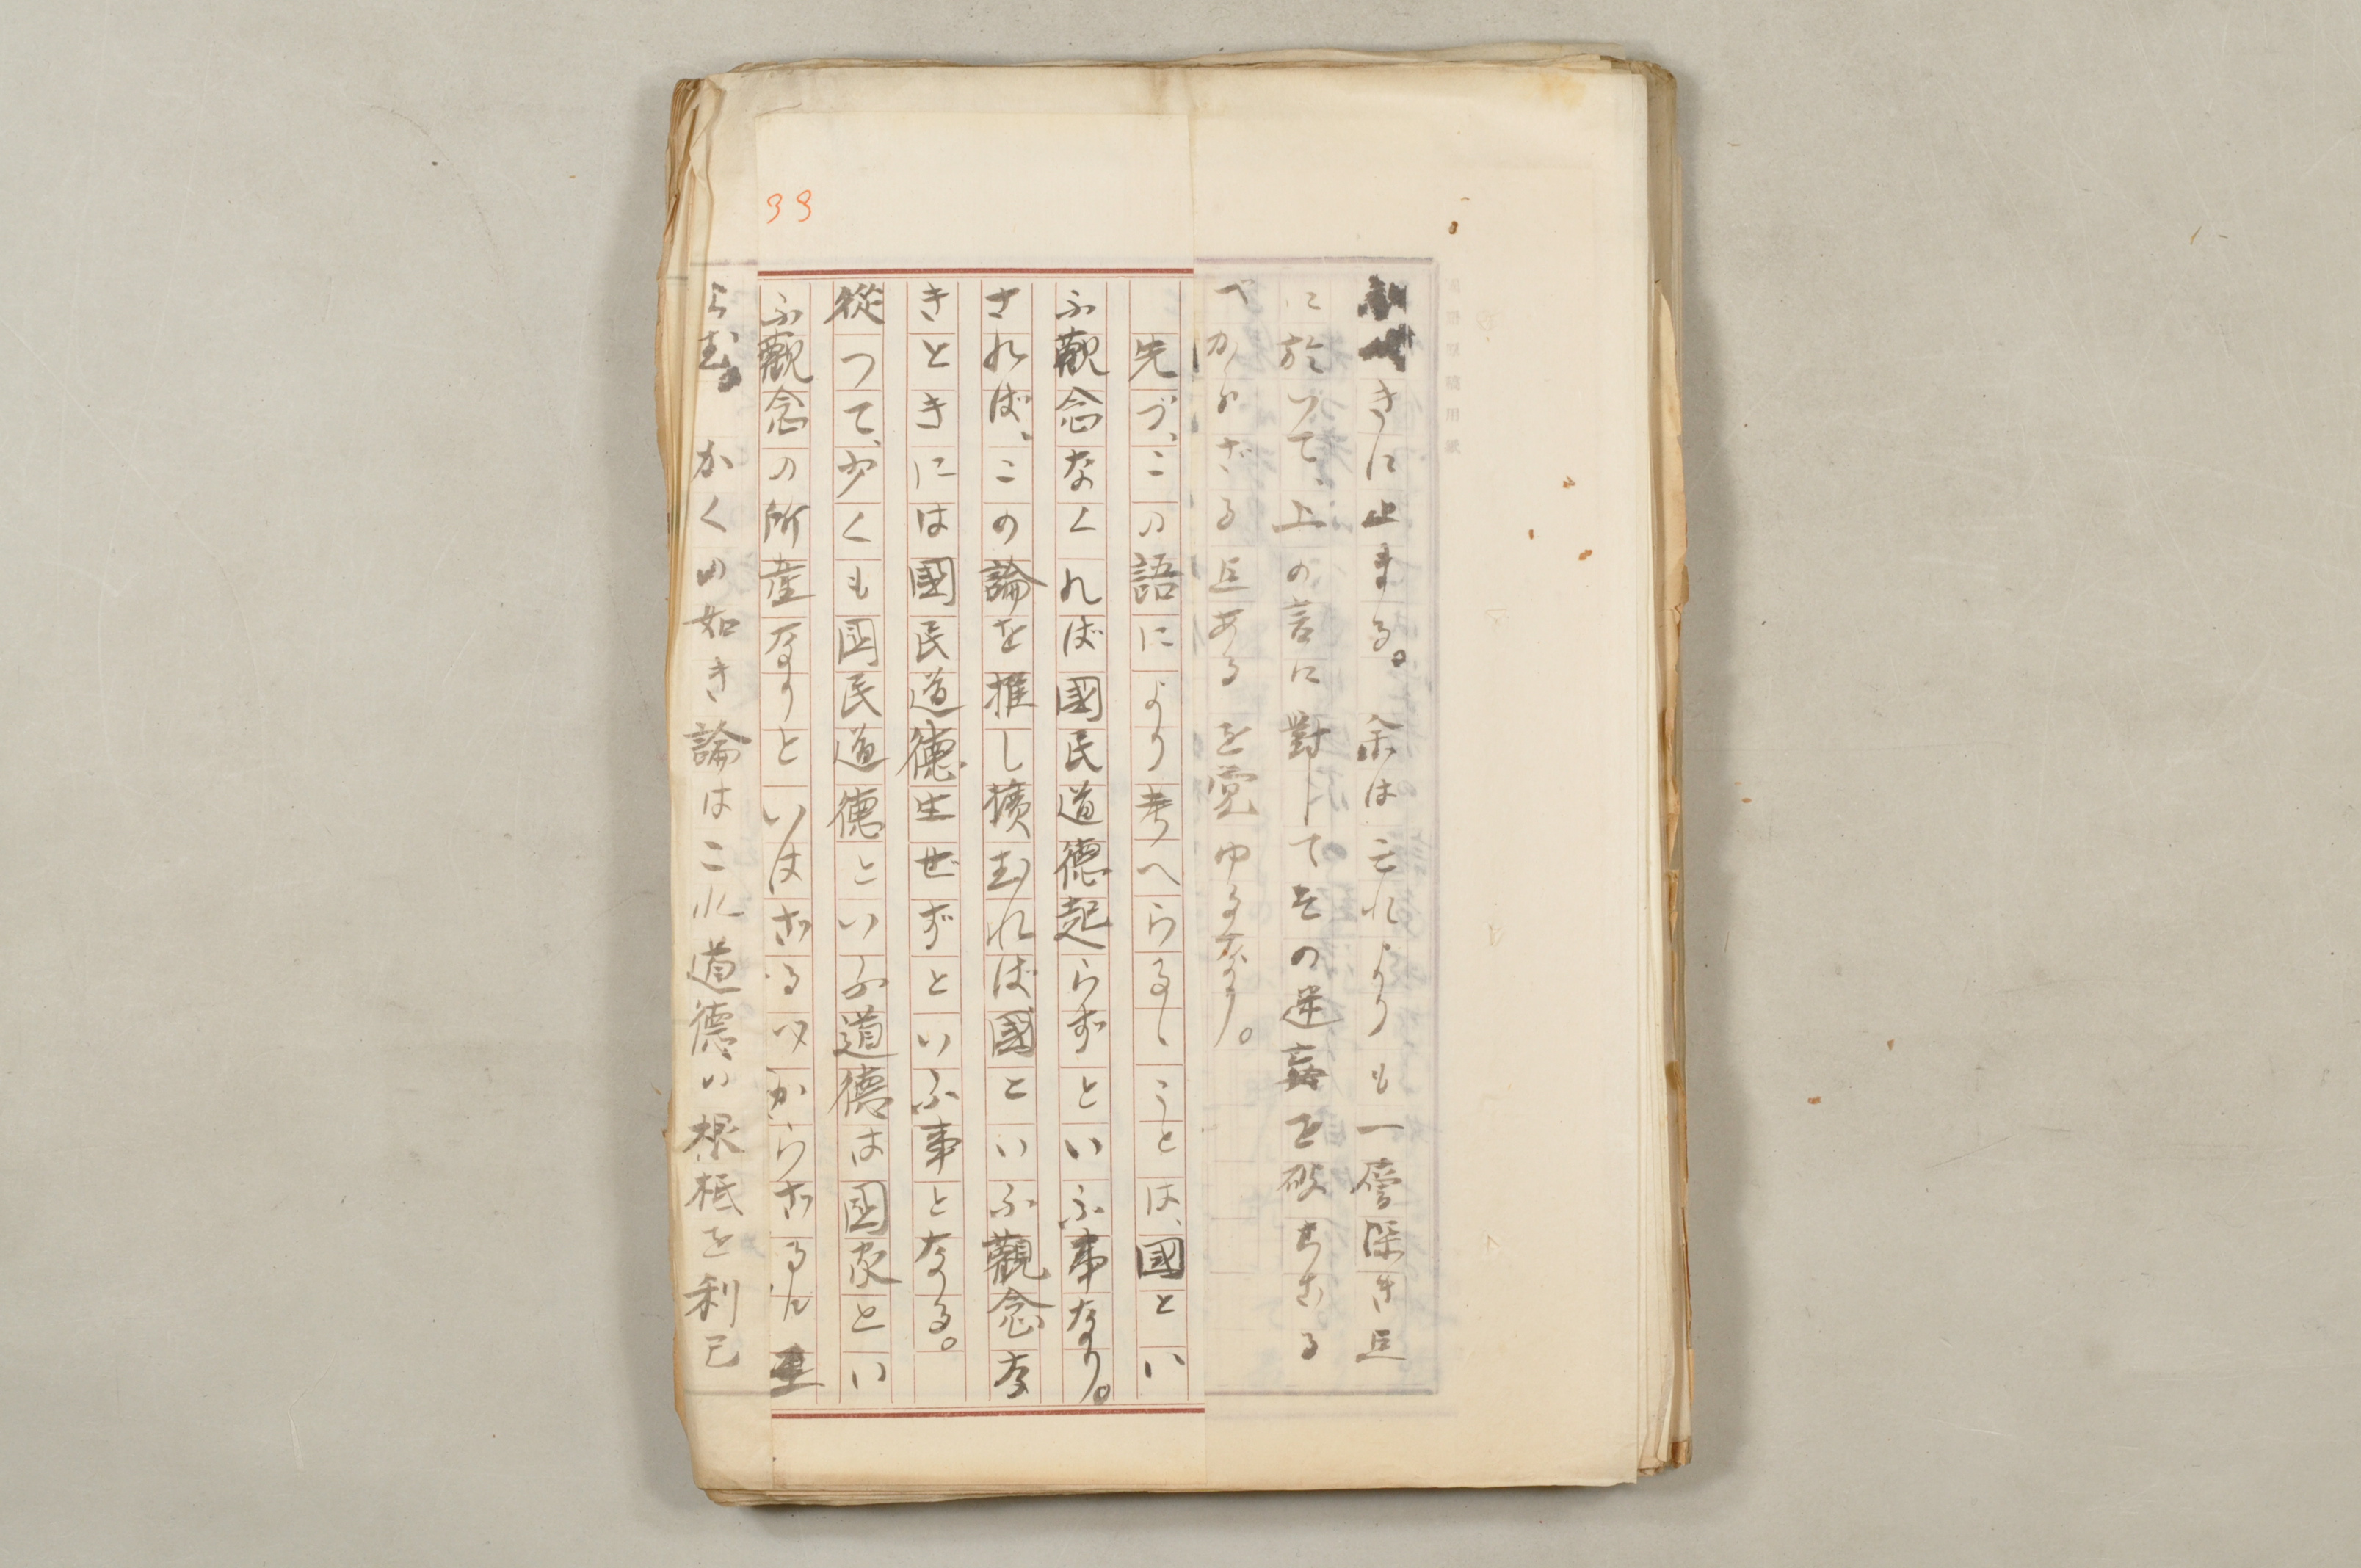 33
きに止まる。 余はこれよりも一層深き正
に於いて、上の言に對してその迷妄を破らざる
べからざる正あるを覚ゆるなり。
先づ、この語により考へらるゝことは、國とい
ふ觀念なくれば國民道德起らずといふ事なり。
されば、この論を推し擴むれば國といふ觀念な
きときには國民道德生ぜずといふ事となる。
從つて、少くも国民道德といふ道德は国家とい
ふ觀念の所産なりといはざるべからざるに至
らむ。 かくの如き論はこれ道德の根柢を利己